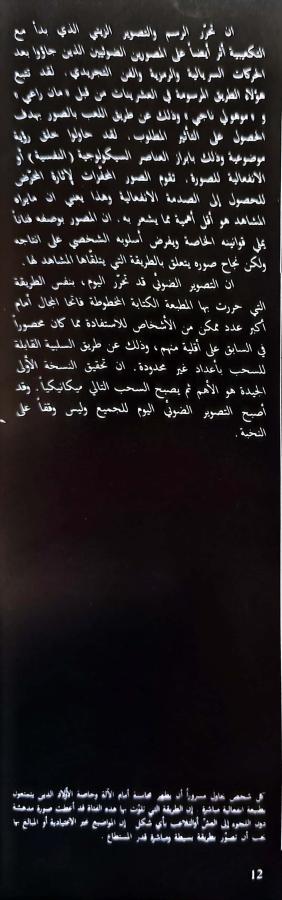 ان تحرّر الرسم والتصوير الزيتي الذي بدأ مع
التكعيبية أثر أيضاً على المصورين الضوئيين الذين جاؤوا بعد
الحركات السريالية والرمزية والفن التجريدي. لقد تتبع
هؤلاء الطريق المرسومة في العشرينات من قبل «مان راي»
و«موهولي ناجي» وذلك عن طريق اللعب بالصور بهدف
الحصول على التأثير المطلوب. لقد حاولوا خلق رؤية
موضوعية وذلك بابراز العناصر السيكولوجية (النفسية) أو
الانفعالية للصورة. تقوم الصور المحفّرات لاثارة المحرّض
للحصول إلى الصدمة الانفعالية وهذا يعني ان مايراه
المشاهد هو أقل أهمية مما يشعر به. ان المصور بوصفه فناناً
يملي قوانينه الخاصة ويفرض أسلوبه الشخصي على انتاجه
ولكن نجاح صوره يتعلق بالطريقة التي يتلقّاها المشاهد لها.
ان التصوير الضوئي قد تحرّر اليوم، بنفس الطريقة
التي حررت بها المطبعة الكتابة المخطوطة فاتحا المجال أمام
أكبر عدد ممكن من الأشخاص للاستفادة مما كان محصوراً
في السابق على أقلية منهم، وذلك عن طريق السلبية القابلة
للسحب بأعداد غير محدودة. ان تحقيق النسخة الأولى
الجيدة هو الأهم ثم يصبح السحب التالي ميكانيكياً. وقد
أصبح التصوير الضوئي اليوم للجميع وليس وقفاً على
النخبة.
كل شخص يحاول مسروراً أن يظهر محاسنه أمام الآلة وخاصة الأولاد الذين يتمتعون
بطبيعة انفعالية مباشرة. إن الطريقة التي لوّنت بها هذه الفتاة قد أعطت صورة مدهشة
دون اللجوء إلى الغش أوالتلاعب بأي شكل. إن المواضيع غير الاعتيادية أو المبالغ بها
يجب أن تصوّر بطريقة بسيطة ومباشرة قدر المستطاع.
12